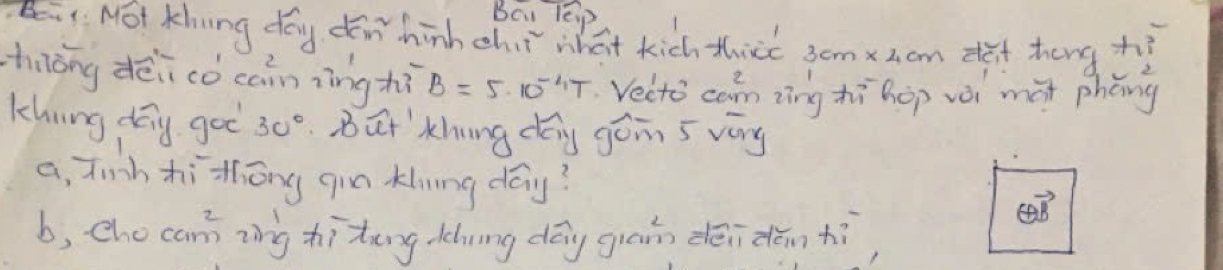 Bài Tập
Bài 1: Một khung dây dẫn hình chữ nhật kích thước 3cm x 4cm đặt trong từ
trường đều có cảm ứng từ B = 5.10⁻⁴T. Véctơ cảm ứng từ hợp với mặt phẳng
khung dây góc 30°. Biết khung dây gồm 5 vòng
a, Tính từ thông qua khung dây?
b, Cho cảm ứng từ trong khung dây giảm đều đến từ
⊕B⃗